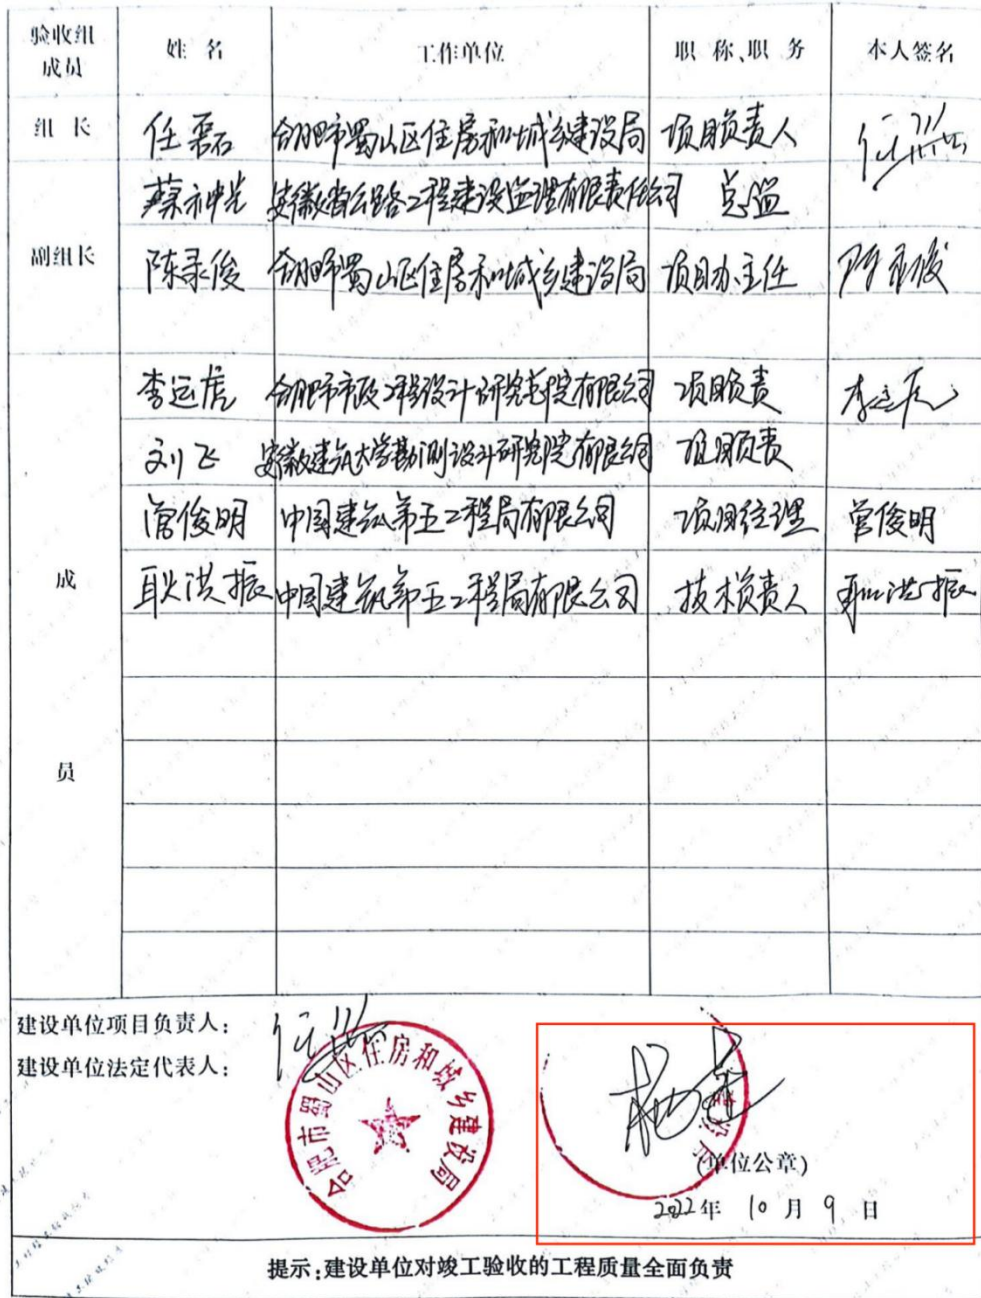 验收组成员 姓 名 工作单位 职 称、职 务 本人签名
组 长 任磊 合肥市蜀山区住房和城乡建设局 项目负责人
蔡神光 安徽省公路工程建设监理有限责任公司 总监
副组长 陈录俊 合肥市蜀山区住房和城乡建设局 项目办主任
李运虎 合肥市市政工程设计研究总院有限公司 项目负责
刘飞 安徽建筑大学勘测设计研究院有限公司 项目负责
管俊明 中国建筑第五工程局有限公司 项目经理 管俊明
成 耿洪振 中国建筑第五工程局有限公司 技术负责人 耿洪振
员
建设单位项目负责人:
建设单位法定代表人:
合肥市蜀山区住房和城乡建设局
(单位公章)
2022年 10 月 9 日
提示:建设单位对竣工验收的工程质量全面负责